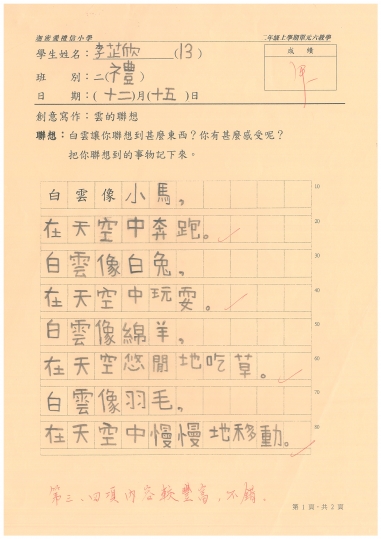 海壩街禮信小學 二年級上學期單元六教學
學生姓名：李芷欣 (13) 成績
班 別：二(禮)
日 期：(十二)月(十五)日
創意寫作：雲的聯想
聯想：白雲讓你聯想到甚麼東西？你有甚麼感受呢？
把你聯想到的事物記下來。
白雲像小馬， 10
在天空中奔跑。 20
白雲像白兔， 30
在天空中玩耍。 40
白雲像綿羊， 50
在天空悠閒地吃草。 60
白雲像羽毛， 70
在天空中慢慢地移動。 80
第三、四項內容較豐富，不錯。
第1頁，共2頁